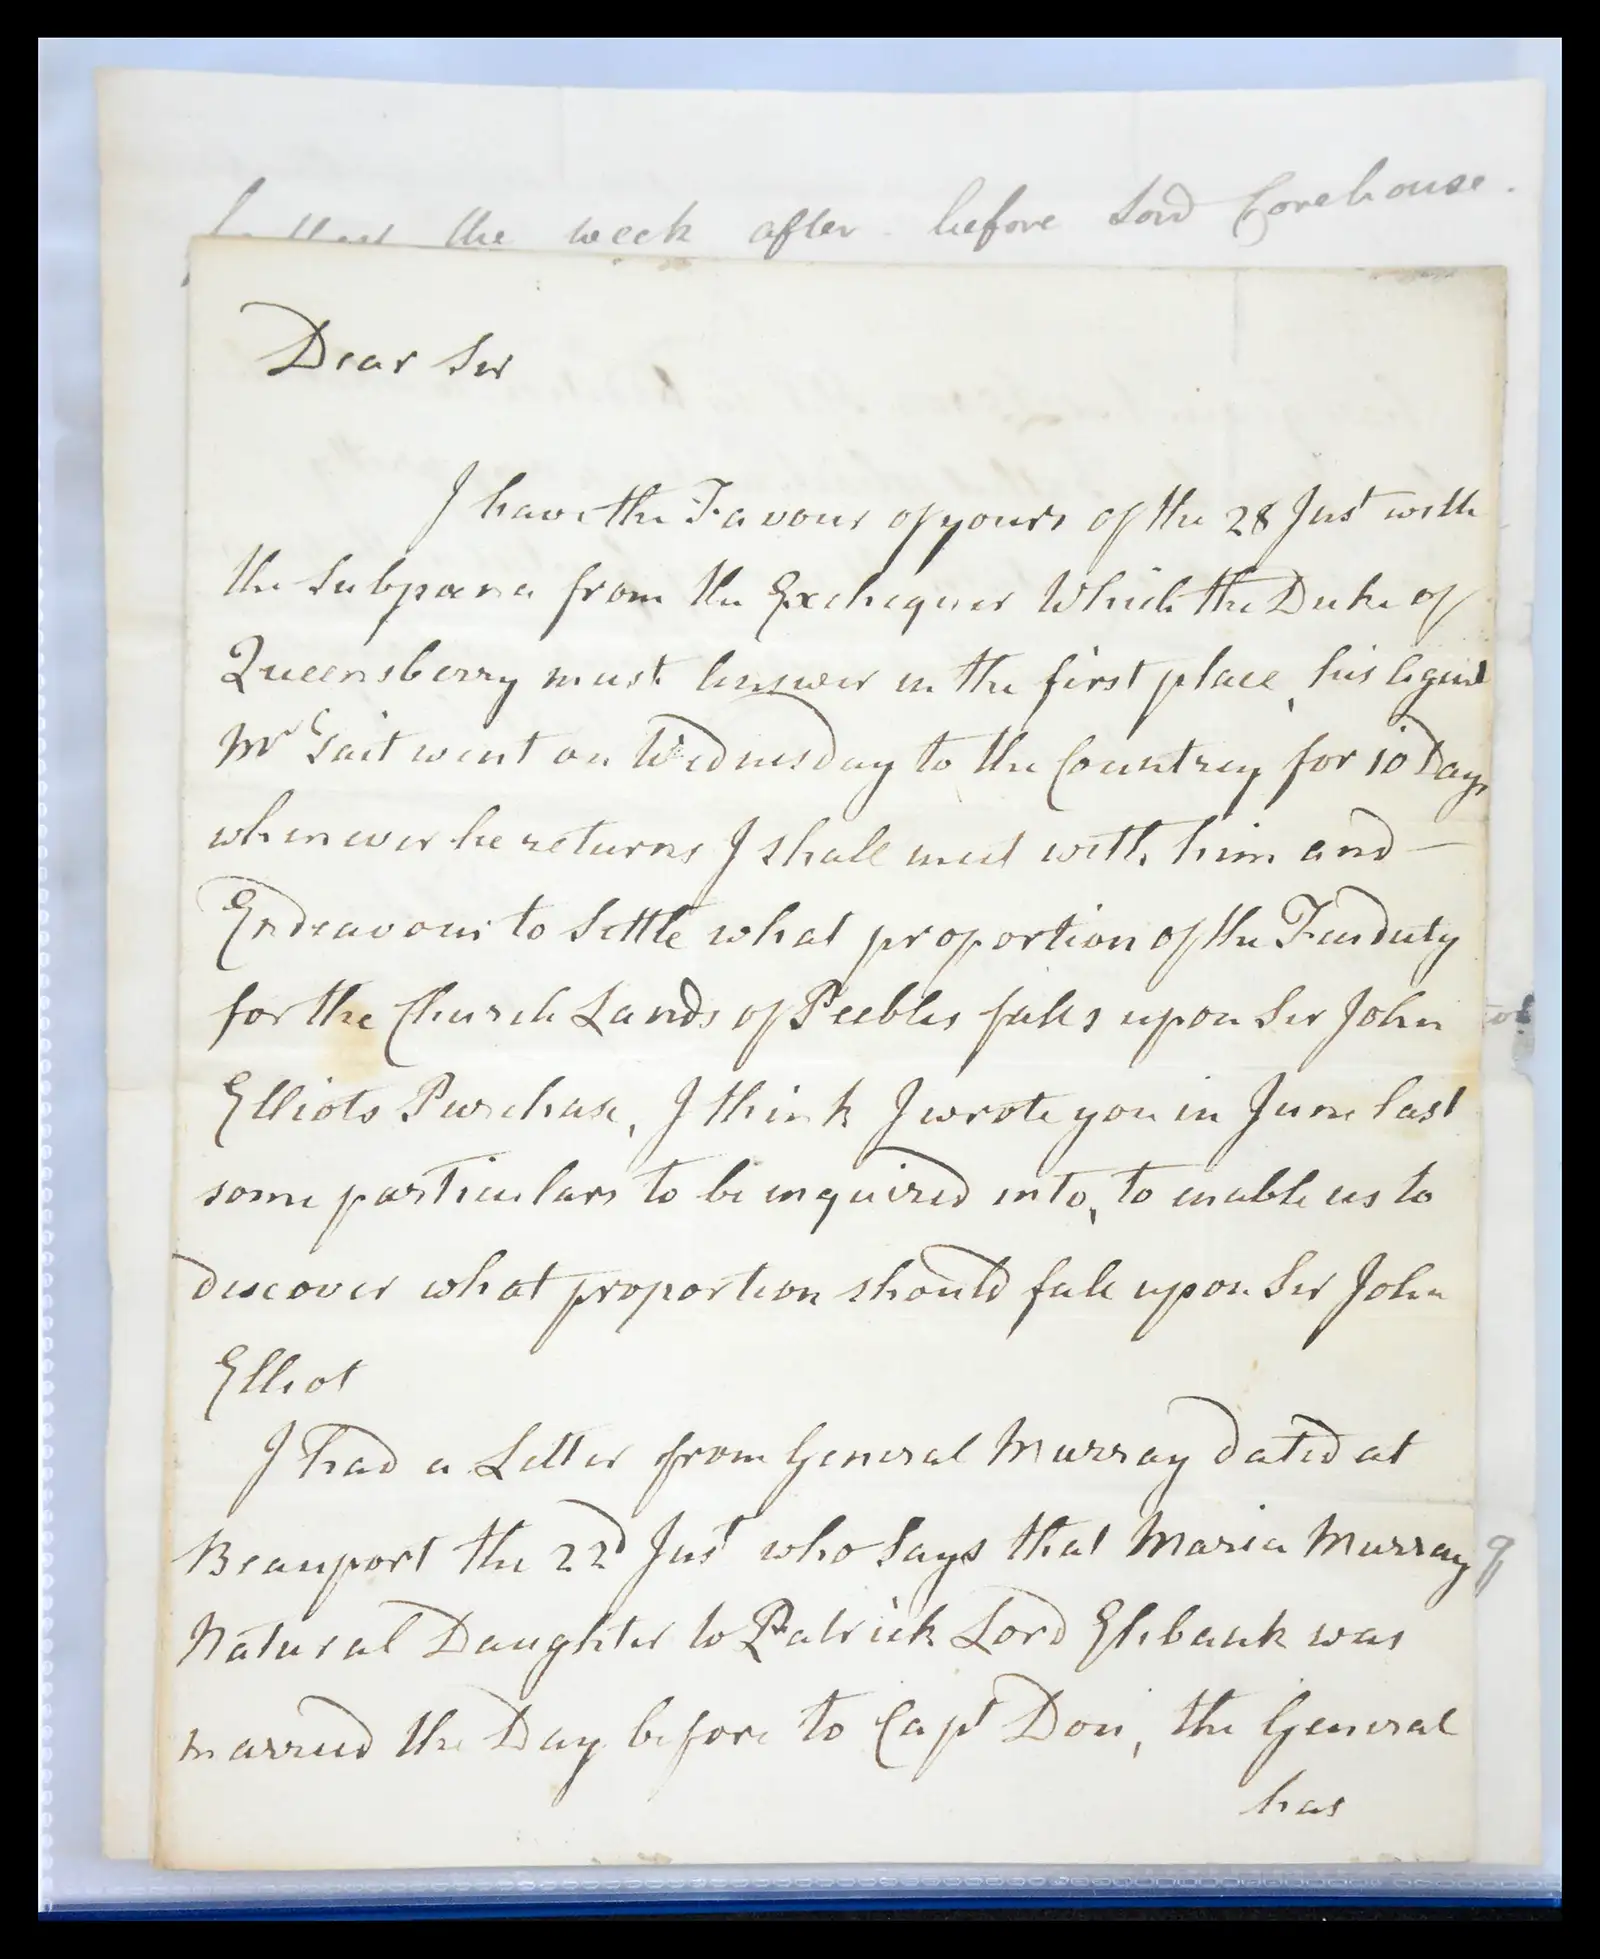 the week after before Lord Corehouse.
Dear Sir
I have the Favour of yours of the 28 Inst with
the Subpœna from the Exchequer Which the Duke of
Queensberry must answer in the first place, his agent
Mr Tait went on Wednesday to the Countrey for 10 Days
whenever he returns I shall meet with him and —
Endeavour to Settle what proportion of the Feuduty
for the Church Lands of Peebles falls upon Sir John
Elliots Purchase, I think I wrote you in June last
some particulars to be inquired into, to enable us to
discover what proportion should fall upon Sir John
Elliot
I had a Letter from General Murray dated at
Beauport the 22d Inst who Says that Maria Murray
Natural Daughter to Patrick Lord Elibank was
married the Day before to Capt Don, the General
has